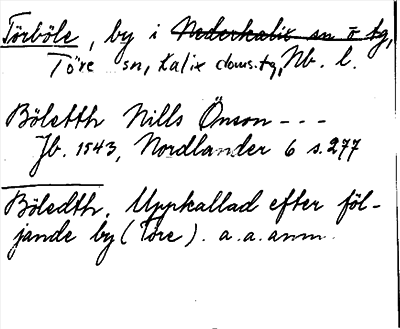 Törböle, by i Nederkalix sn o tg,
Töre sn, Kalix doms.tg, Nb. l.
Böletth Nills Önson - - -
Jb. 1543, Nordlander 6 s. 277
Böledth. Uppkallad efter föl-
jande by (Töre). a.a.anm.